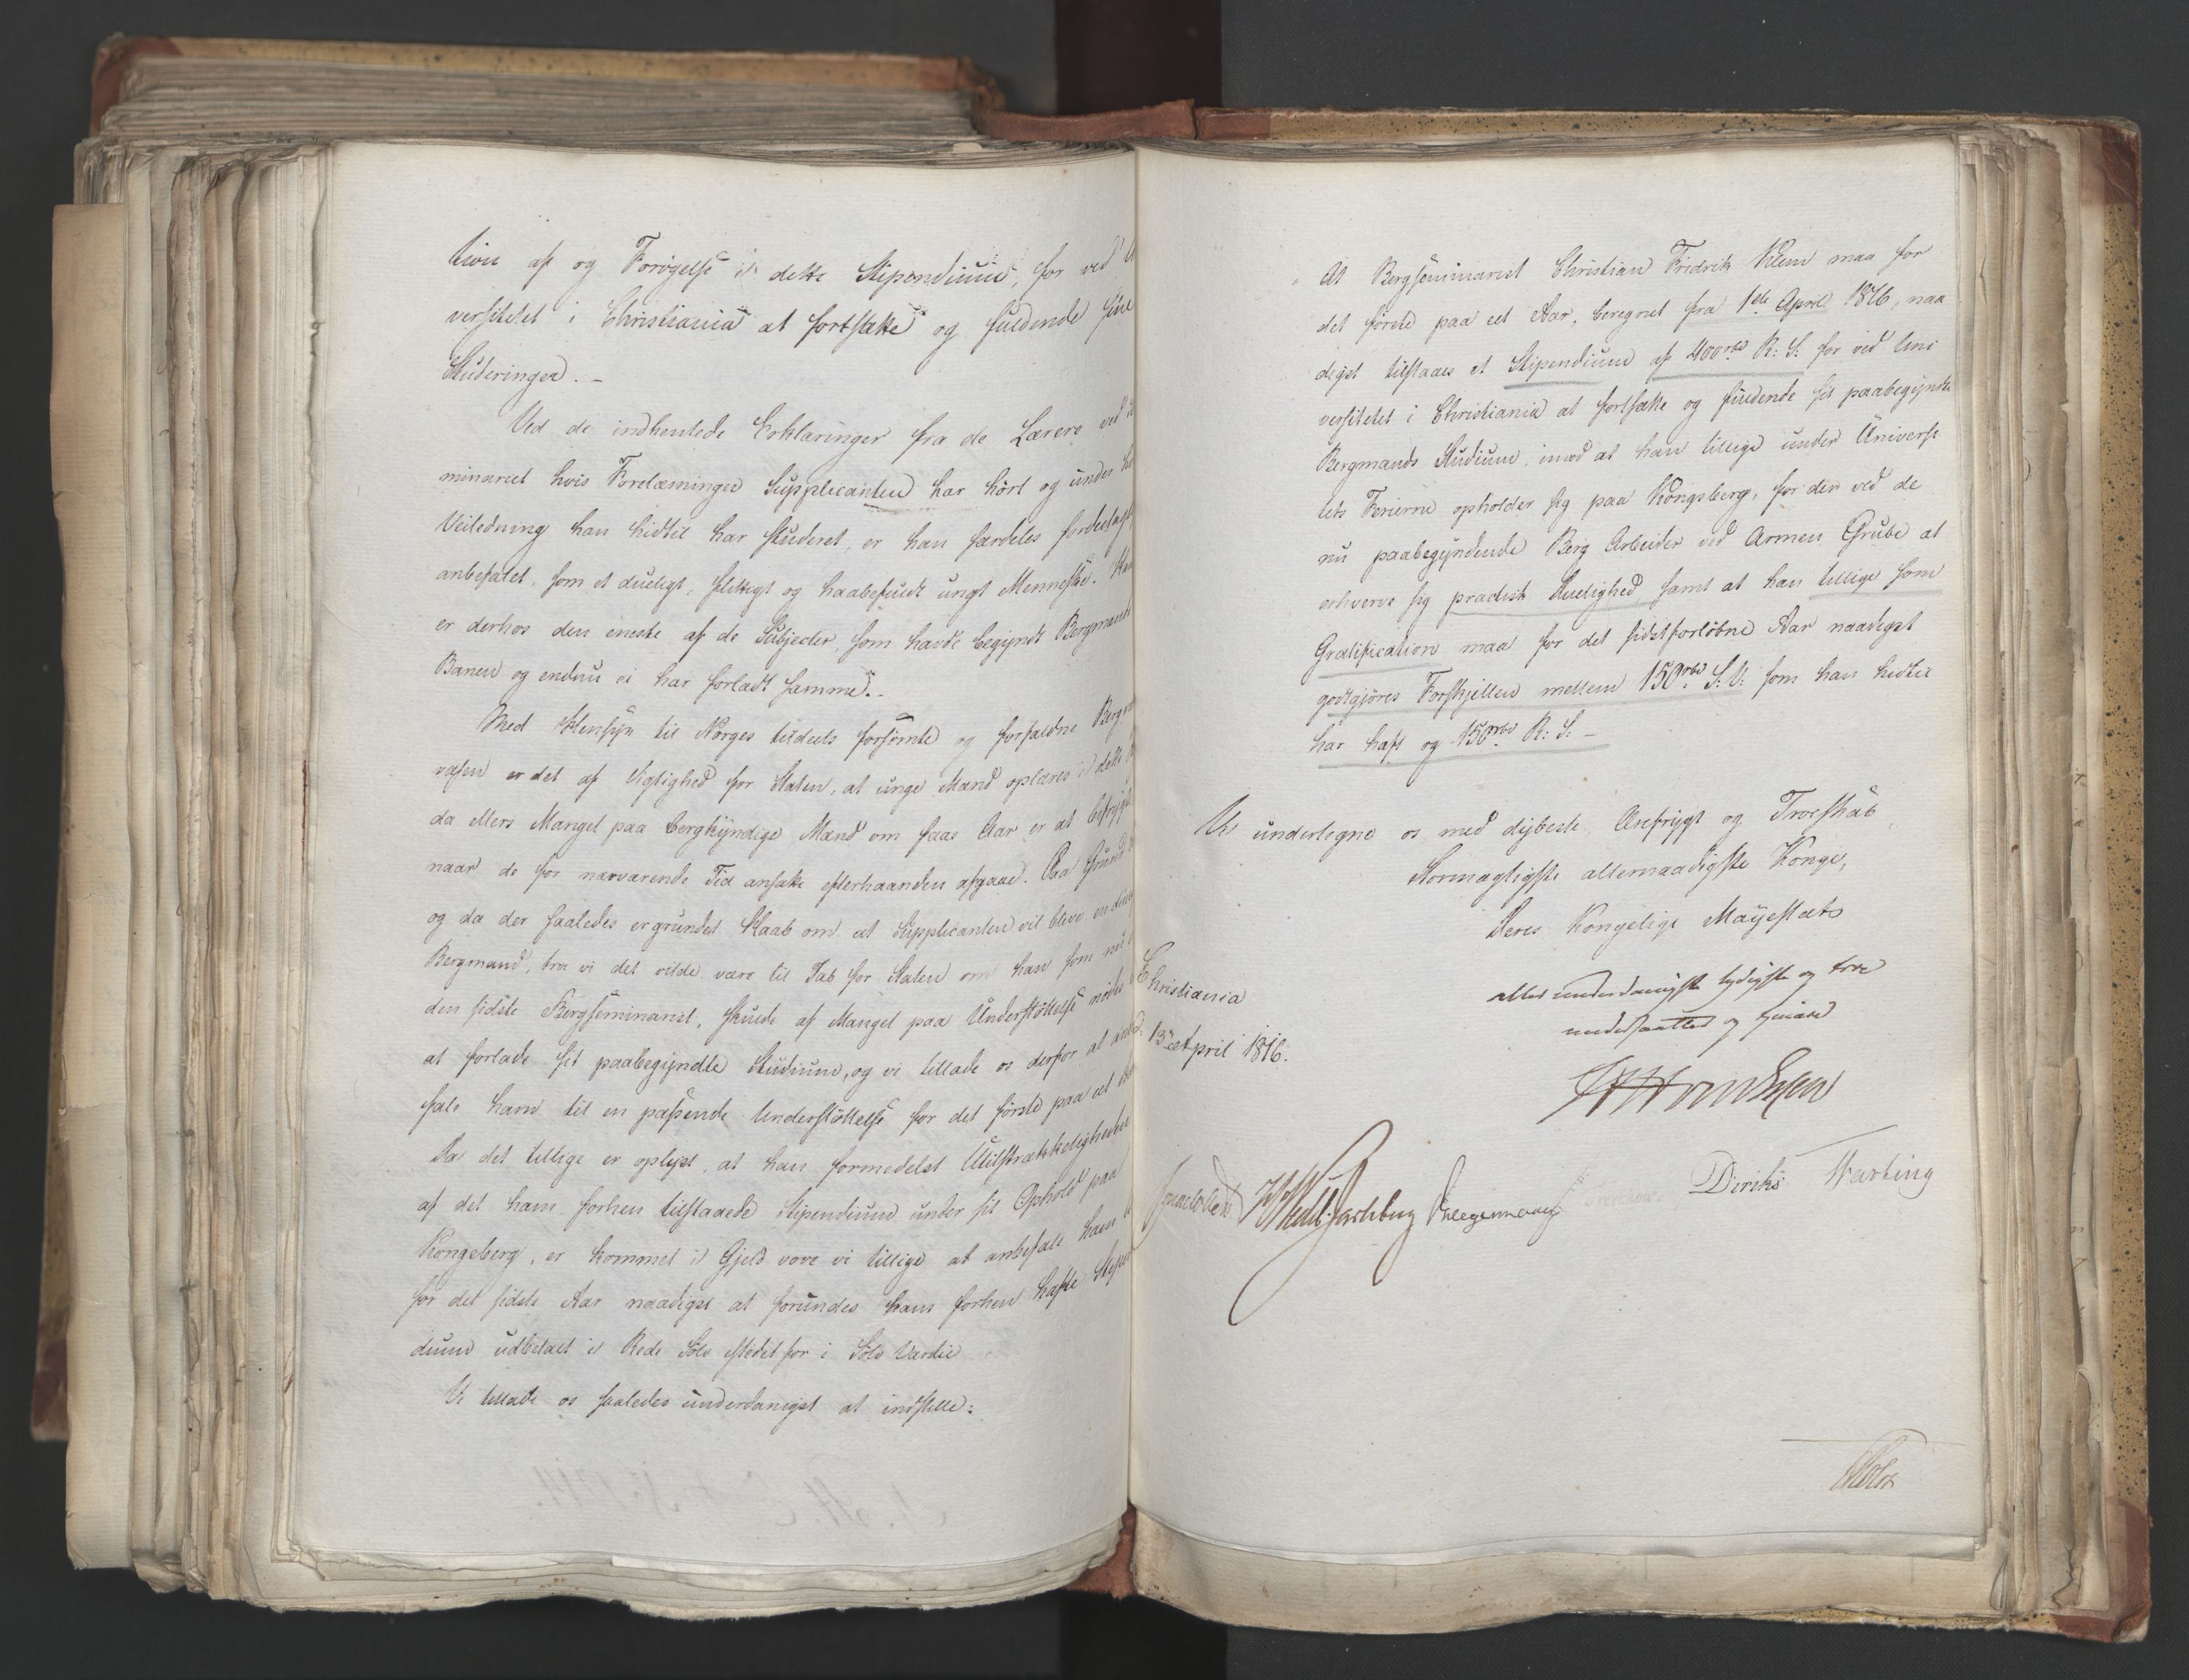 tion af og Forøgelse i dette Stipendium, for ved U
versitetet i Christiania at fortsætte og fuldende sine
Studeringer. -
Ved de indhentede Erklæringer fra de Lærere ved
minariet hvis Forelæsninger Supplicanten har hørt og under
Veiledning han hidtil har studeret, er han særdeles fordeelagt
anbefalet, som et dueligt, flittigt og haabefuldt ungt Menneske. Han
er derhos den eneste af de Subjecter, som havde begyndt Bergmands
Banen og endnu ei har forladt samme. -
Med Hensyn til Norges tildeels forsømte og forfaldne Berg
væsen er det af Vigtighed for Staten, at unge Mænd oplæres i dette
da ellers Mangel paa bergkyndige Mænd om faae Aar er at befrygte
naar de for nærværende Tid ansatte efterhaanden afgaae. Paa Grund
og da der saaledes er grundet Haab om at Supplicanten vil blive en
Bergmand, troe vi det vilde være til Tab for Staten om han som nu
den sidste Bergseminarist, skulde af Mangel paa Understøttelse nødes
at forlade sit paabegyndte Studium, og vi tillade os derfor at anbe
fale ham til en passende Understøttelse for det første paa et Aar
Da det tillige er oplyst, at han formedelst Utilstrækkeligheden
af det ham forhen tilstaaede Stipendium under sit Ophold paa
Kongsberg, er kommet i Gjeld vove vi tillige at anbefale ham
for det sidste Aar naadigst at forundes hans forhen hafte Stipen
dium udbetalt i Rede Sølv istedetfor i Sølv Værdie
Vi tillade os saaledes underdanigst at indstille:
At Bergseminarist Christian Fridrik Klem maa for
det første paa eet Aar, beregnet fra 1ste April 1816, naa
digst tilstaaes et Stipendium af 400 rbd R: S: for ved Uni
versitetet i Christiania at fortsætte og fuldende sit paabegyndte
Bergmands Studium, imod at han tillige under Universi
tets Ferierne opholder sig paa Kongsberg, for der ved de
nu paabegyndende Berg Arbeider ved Armen Grube at
erhverve sig practisk Duelighed samt at han tillige som
Gratification maa for det sidstforløbne Aar naadigst
godtgjøres Forskjellen mellem 150 rbd S: V: som han hidtil
har haft og 150 rbd R: S: -
Vi undertegne os med dybeste Ærefrygt og Troeskab
Stormægtigste allernaadigste Konge,
Deres Kongelige Mayestæts
Christiania
d. 13de April 1816.
allerunderdanigste lydigste og troe
undersaatter og tjenere
Diriks Hartvig
Holst